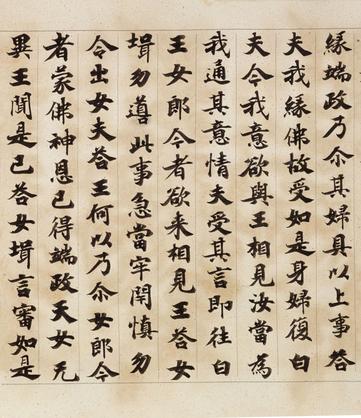 縁端政乃尒其婦具以上事答
夫我縁佛故受如是身婦復白
夫今我意欲與王相見汝當為
我通其意情夫受其言即往白
王女郎今者欲来相見王答女
壻勿噵此事急當牢閇慎勿
令出女夫答王何以乃尒女郎今
者蒙佛神恩已得端政天女无
異王聞是已答女壻言審如是